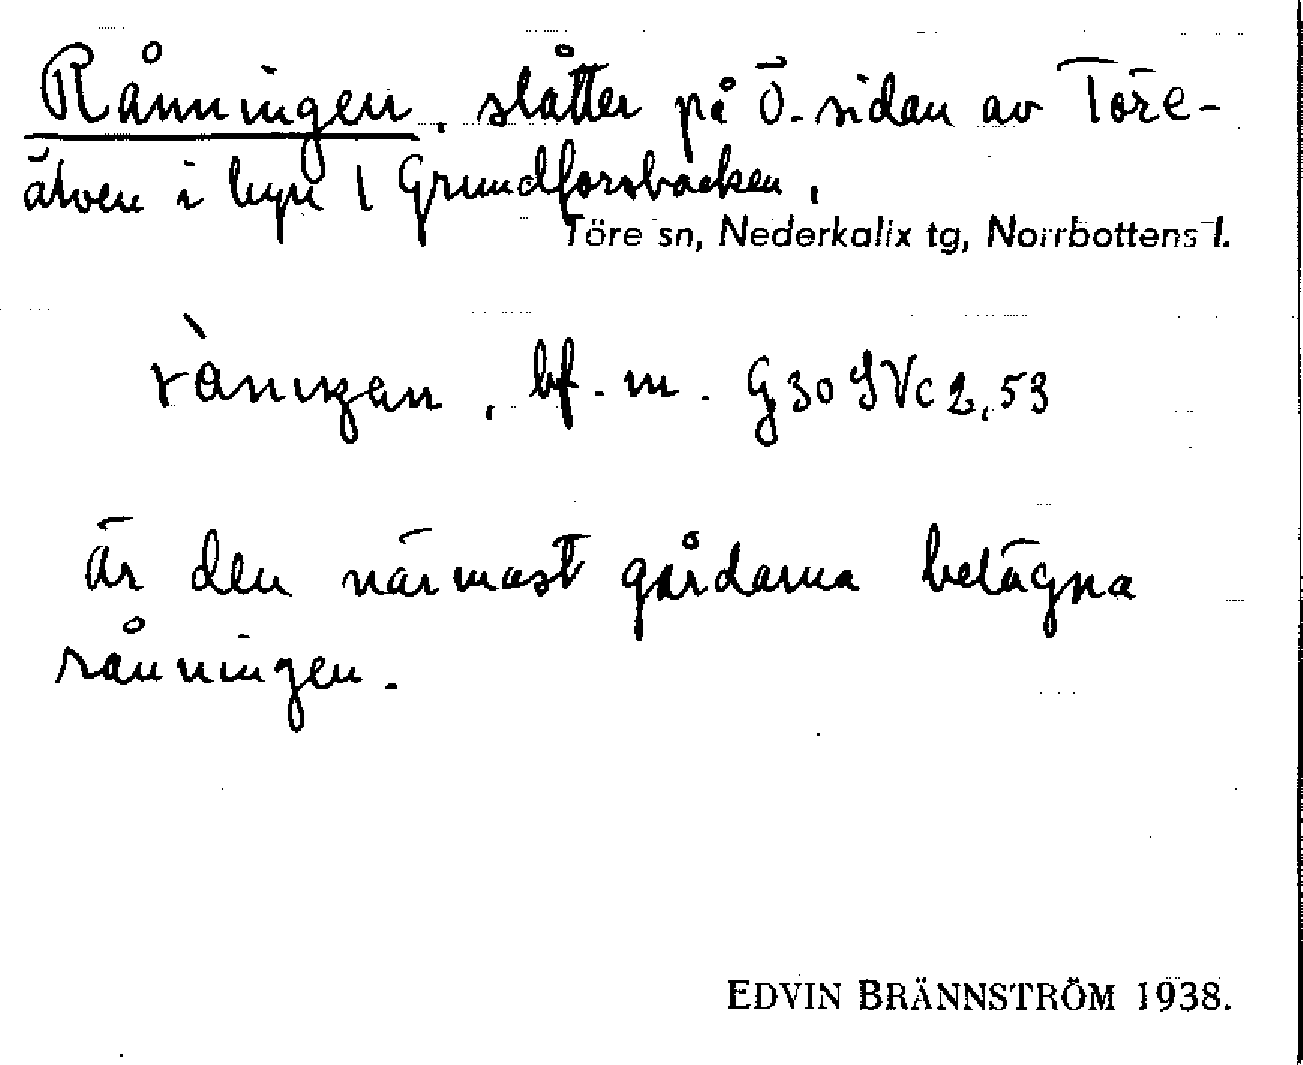 Rånningen, slåtter på Ö. sidan av Töre-
älven i byn 1 Grundforsbäcken,
Töre sn, Nederkalix tg, Norrbottens l.
bf. m. G 30 SV c 2, 53
är den närmast gårdarna belägna
rånningen.
EDVIN BRÄNNSTRÖM 1938.